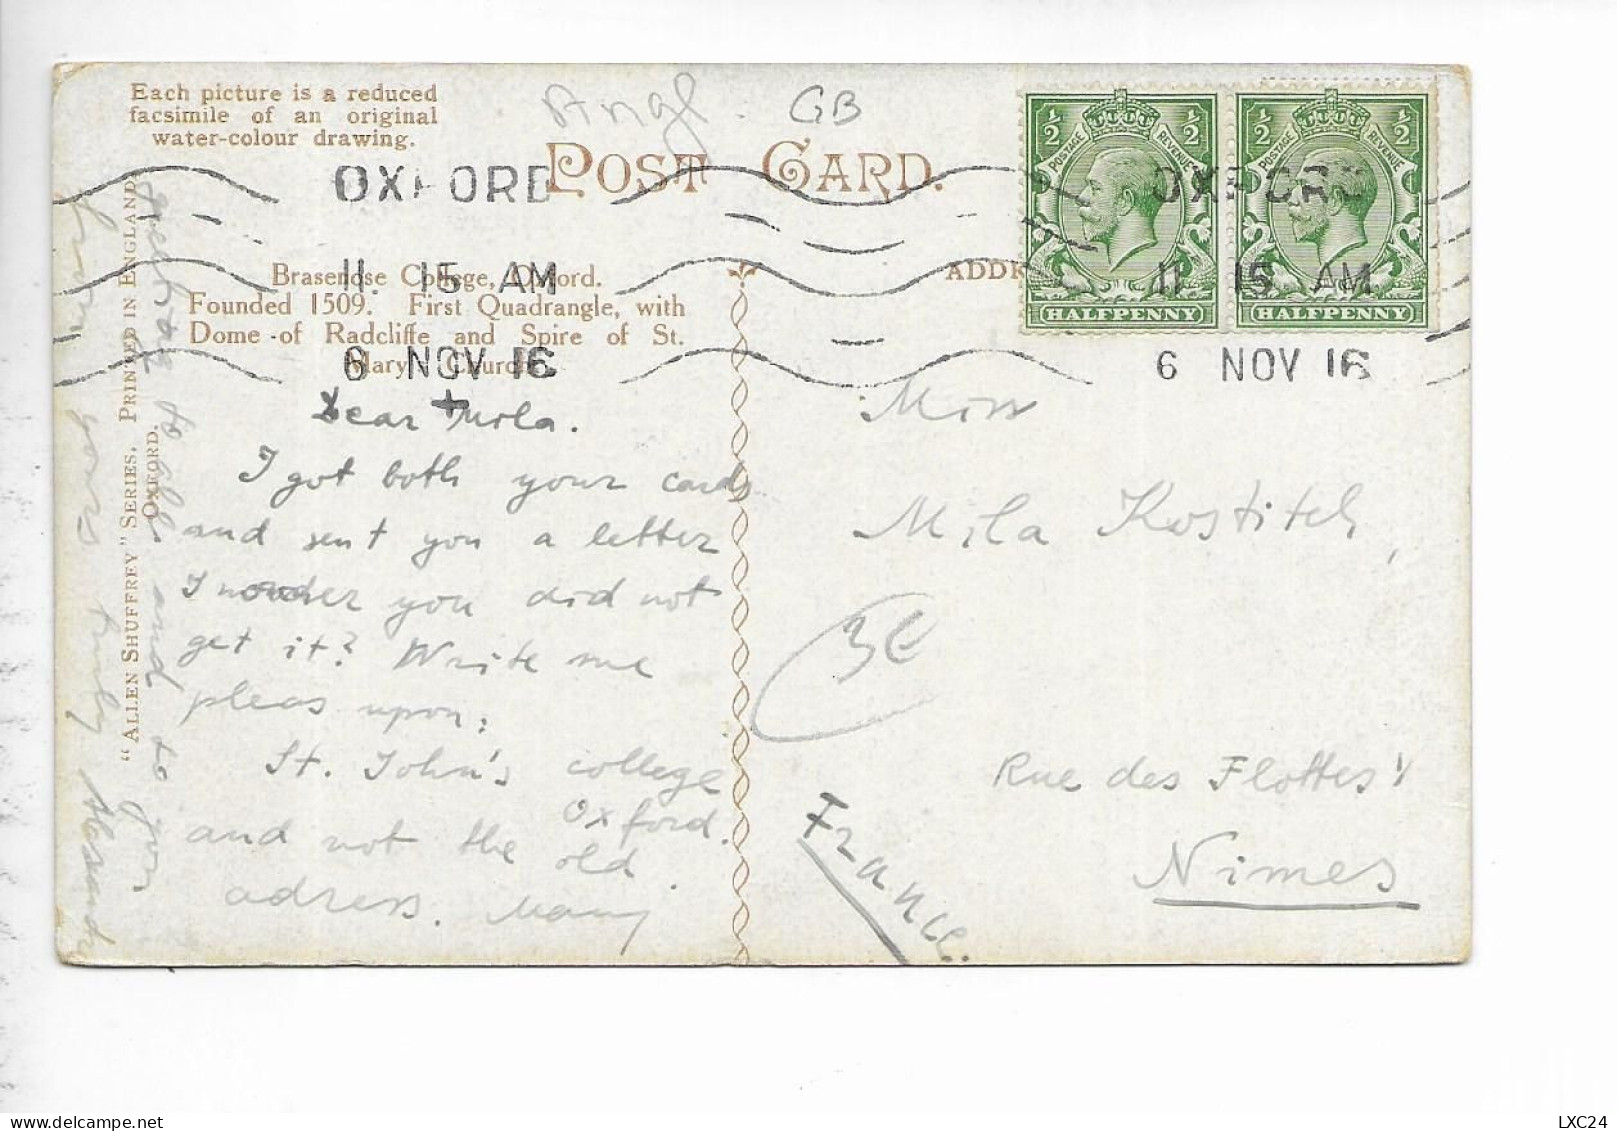 Each picture is a reduced
facsimile of an original
water-colour drawing.
Angl. GB
POST CARD.
OXFORD
11. 15 AM
6 NOV 16
OXFORD
11 15 AM
6 NOV 16
½ ½
POSTAGE REVENUE
HALFPENNY
½ ½
POSTAGE REVENUE
HALFPENNY
Brasenose College, Oxford.
Founded 1509. First Quadrangle, with
Dome of Radcliffe and Spire of St.
Mary's Church.
"ALLEN SHUFFREY" SERIES. PRINTED IN ENGLAND
OXFORD.
Dear
I got both your cards
and sent you a letter
I wonder you did not
get it? Write me
pleas upon:
St. John's college
Oxford.
and not the old
adress. Many
to all and to your
from yours truly
Miss
Mila Kostitch,
3€
Rue des Flottes
Nimes
France.
LXC24